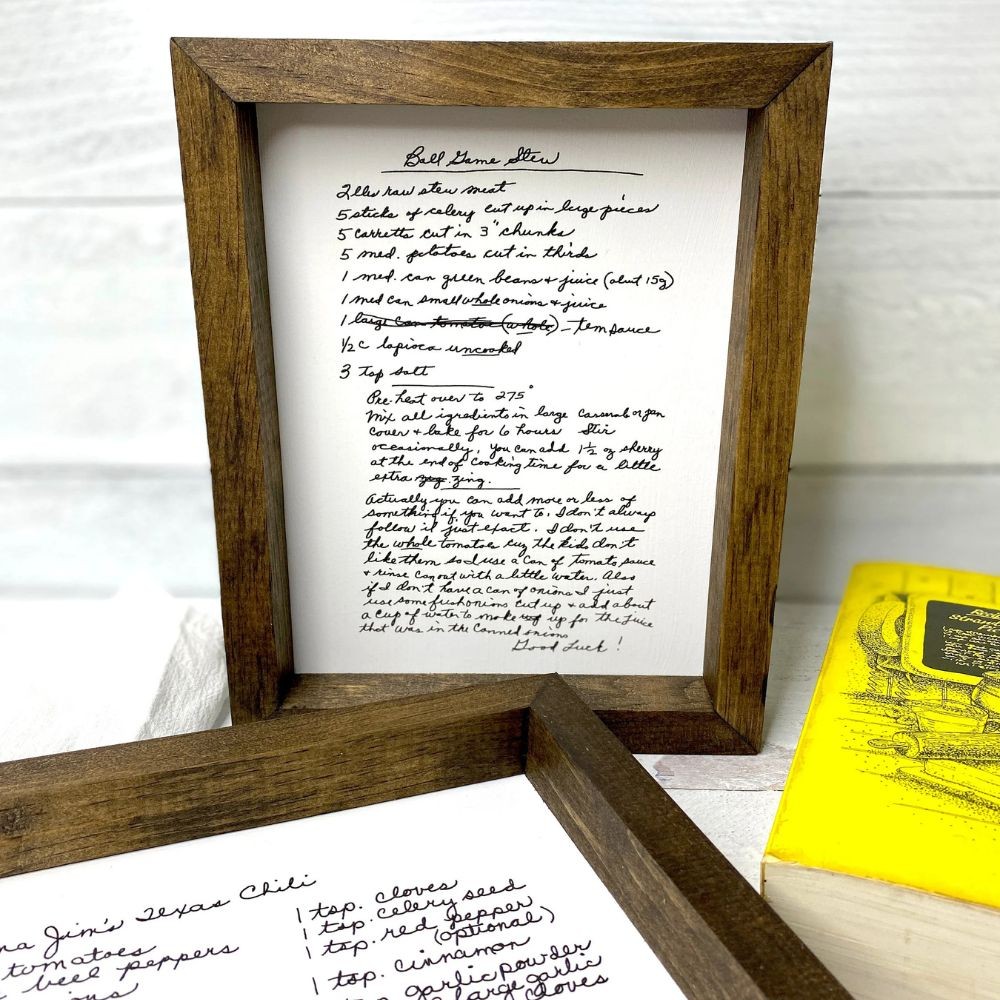 Ball Game Stew
2 lbs raw stew meat
5 sticks of celery cut up in large pieces
5 carretts cut in 3" chunks
5 med. potatoes cut in thirds
1 med. can green beans + juice (about 15g)
1 med can small whole onions + juice
1 large can tomatoe (whole) - tom sauce
1/2 c tapioca uncooked
3 tsp salt
Pre-heat oven to 275°
Mix all igredients in large casserol or pan
cover + bake for 6 hours Stir
occasionally, you can add 1 1/2 oz sherry
at the end of cooking time for a little
extra zing.
Actually you can add more or less of
something if you want to. I don't always
follow it just exact. I don't use
the whole tomatoes cuz the kids don't
like them so I use a can of tomato sauce
+ rinse can out with a little water. Also
if I don't have a can of onions I just
use some fresh onions cut up + add about
a cup of water to make up for the juice
that was in the canned onions
Good Luck!
Jim's Texas Chili
tomatoes
bell peppers
1 tsp. cloves
1 tsp. celery seed
1 tsp. red pepper
(optional)
1 tsp. cinnamon
garlic powder
large garlic
cloves